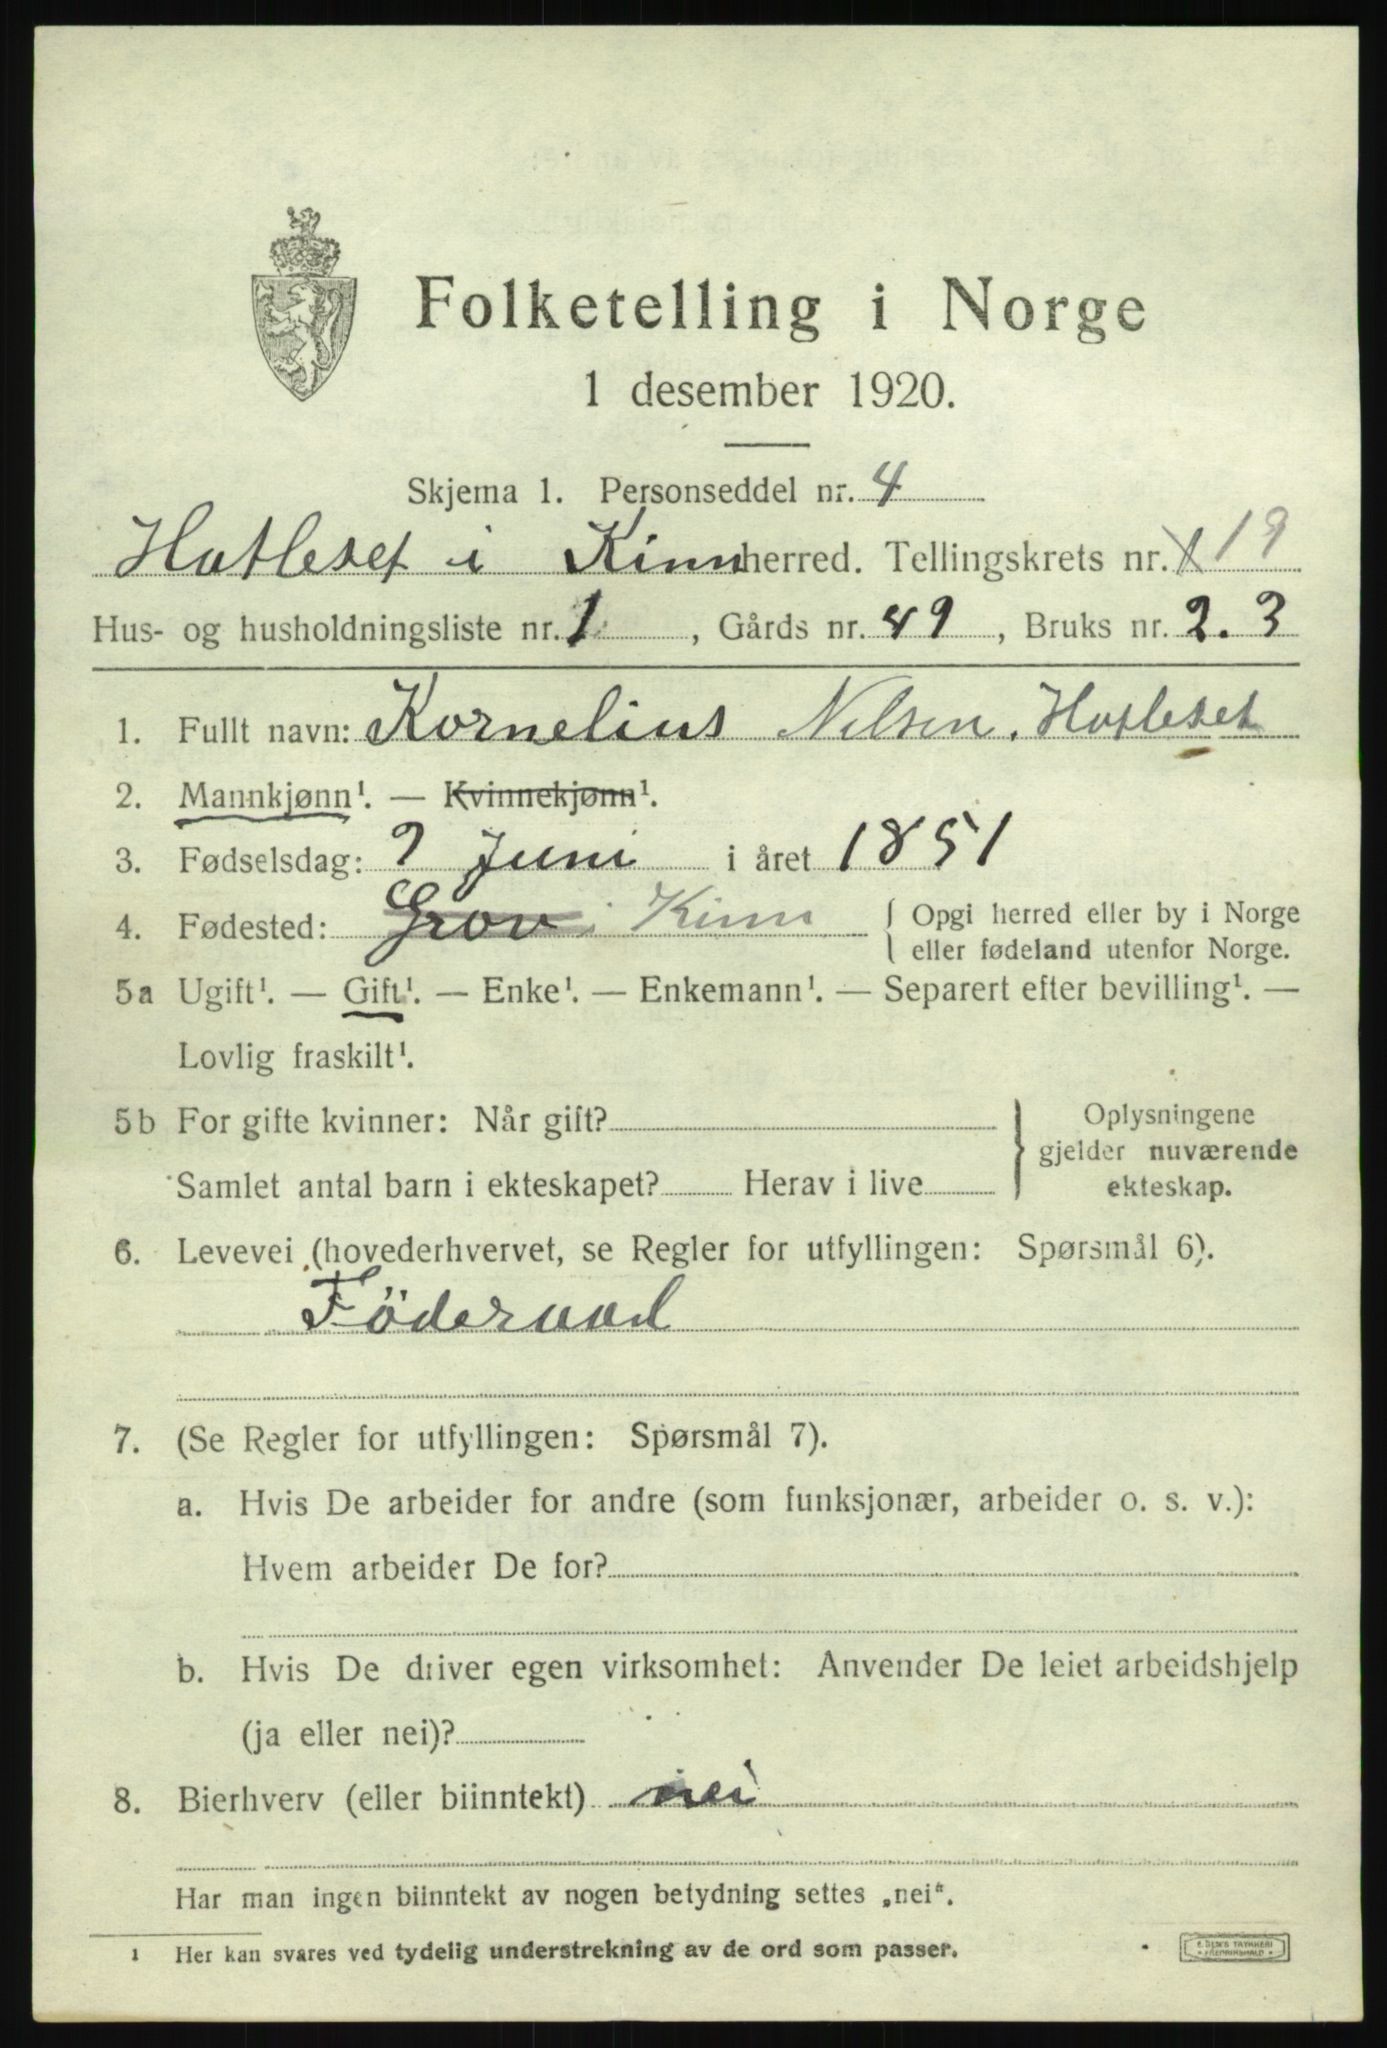 Folketelling i Norge
1 desember 1920.
Skjema 1. Personseddel nr. 4
Hatleset i Kinn herred. Tellingskrets nr. 1 19
Hus- og husholdningsliste nr. 1, Gårds nr. 49, Bruks nr. 2. 3
1. Fullt navn: Kornelius Nilsen. Hatleset
2. Mannkjønn¹. — Kvinnekjønn¹.
3. Fødselsdag: 9 Juni i året 1851
4. Fødested: Grov i Kinn { Opgi herred eller by i Norge
eller fødeland utenfor Norge.
5a Ugift¹. — Gift¹. — Enke¹. — Enkemann¹. — Separert efter bevilling¹. —
Lovlig fraskilt¹.
5b For gifte kvinner: Når gift? } Oplysningene
gjelder nuværende
Samlet antal barn i ekteskapet? Herav i live ekteskap.
6. Levevei (hovederhvervet, se Regler for utfyllingen: Spørsmål 6).
Föderaad
7. (Se Regler for utfyllingen: Spørsmål 7).
a. Hvis De arbeider for andre (som funksjonær, arbeider o. s. v.):
Hvem arbeider De for?
b. Hvis De driver egen virksomhet: Anvender De leiet arbeidshjelp
(ja eller nei)?
8. Bierhverv (eller biinntekt) nei
Har man ingen biinntekt av nogen betydning settes „nei“.
1 Her kan svares ved tydelig understrekning av de ord som passer.
TRYKKERI
FREDRIKSHALD